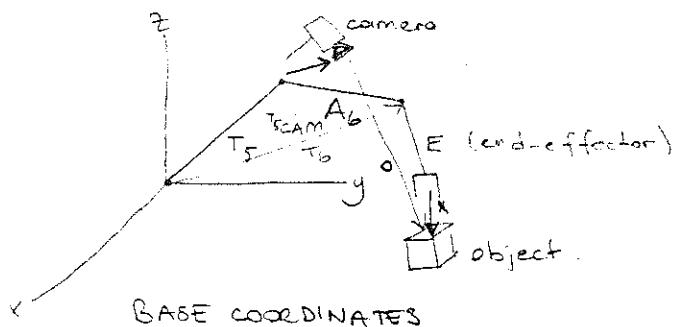 z
camera
T5CAM A6
T5
T6
O
E (end-effector)
y
X
object.
x
BASE COORDINATES